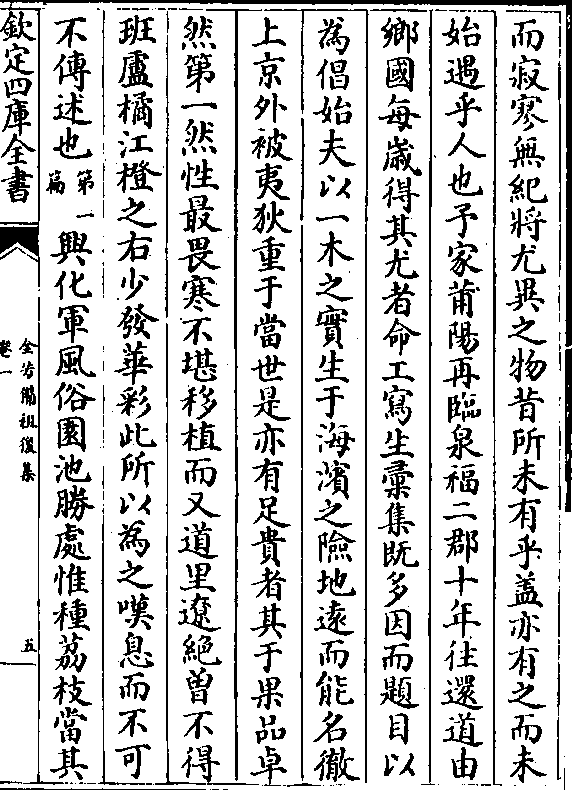 而寂寥無紀將尤異之物昔所未有乎盖亦有之而未
始遇乎人也予家莆陽再臨泉福二郡十年往還道由
鄉國每歲得其尤者命工寫生彙集既多因而題目以
為倡始夫以一木之實生于海濱之險地遠而能名徹
上京外被夷狄重于當世是亦有足貴者其于果品卓
然第一然性最畏寒不堪移植而又道里遼絶曽不得
班盧橘江橙之右少發華彩此所以為之嘆息而不可
不傳述也第一篇興化軍風俗園池勝處惟種荔枝當其
欽定四庫全書
全芳備祖後集
卷一
五